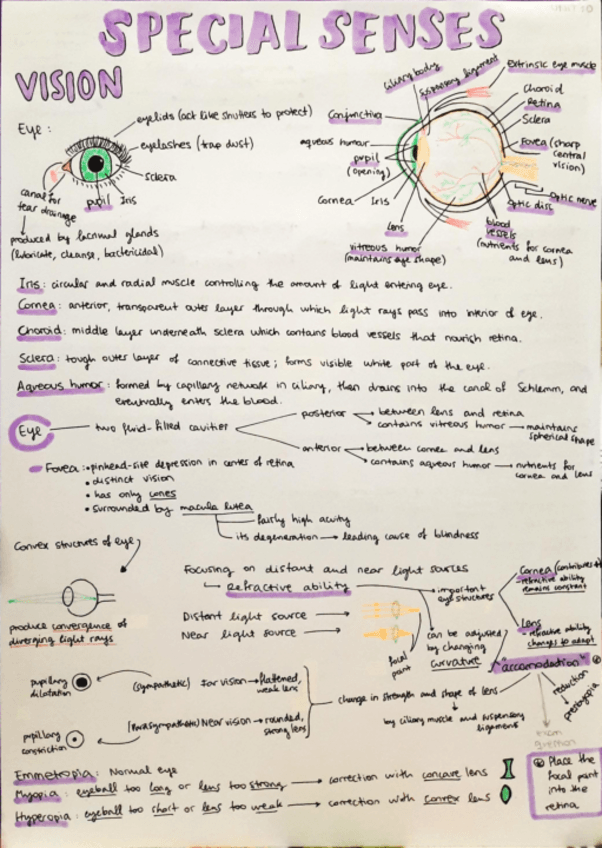 SPECIAL SENSES
VISION
Eye:
eyelids (act like shutters to protect)
eyelashes (trap dust)
sclera
pupil
Iris
canal for
tear drainage
produced by lacrimal glands
(lubricate, cleanse, bactericidal)
ciliary body
suspensory ligament
extrinsic eye muscle
Conjunctiva
Choroid
Retina
Sclera
aqueous humour
pupil
(opening)
Fovea (sharp
central
vision)
Cornea
Iris
Optic nerve
Optic disc
lens
vitreous humor
(maintains eye shape)
blood
vessels
(nutrients for cornea
and lens)
Iris: circular and radial muscle controlling the amount of light entering eye.
Cornea: anterior, transparent outer layer through which light rays pass into interior of eye.
Choroid: middle layer underneath sclera which contains blood vessels that nourish retina.
Sclera: tough outer layer of connective tissue; forms visible white part of the eye.
Aqueous humor: formed by capillary network in ciliary, then drains into the canal of Schlemm, and
eventually enters the blood.
Eye
two fluid-filled cavities
posterior
between lens and retina
contains vitreous humor → maintains
spherical shape
anterior
between cornea and lens
contains aqueous humor → nutrients for
cornea and lens
Fovea: • pinhead-size depression in center of retina
• distinct vision
• has only cones
• surrounded by macula lutea
fairly high acuity
its degeneration → leading cause of blindness
Convex structures of eye
produce convergence of
diverging light rays
Focusing on distant and near light sources
refractive ability
Distant light source →
Near light source →
focal
point
important
eye structures
can be adjusted
by changing
curvature
Cornea (contributes +
refractive ability
remains constant
Lens
refractive ability
changes to adapt
"accomodation" *
reduction
presbyopia
pupillary
dilatation
(sympathetic) Far vision → flattened,
weak lens
pupillary
constriction
(Parasympathetic) Near vision → rounded,
strong lens
change in strength and shape of lens
by ciliary muscle and suspensory
ligaments
* Place the
focal point
into the
retina
Emmetropia: Normal eye
Myopia: eyeball too long or lens too strong → correction with concave lens
Hyperopia: eyeball too short or lens too weak → correction with convex lens